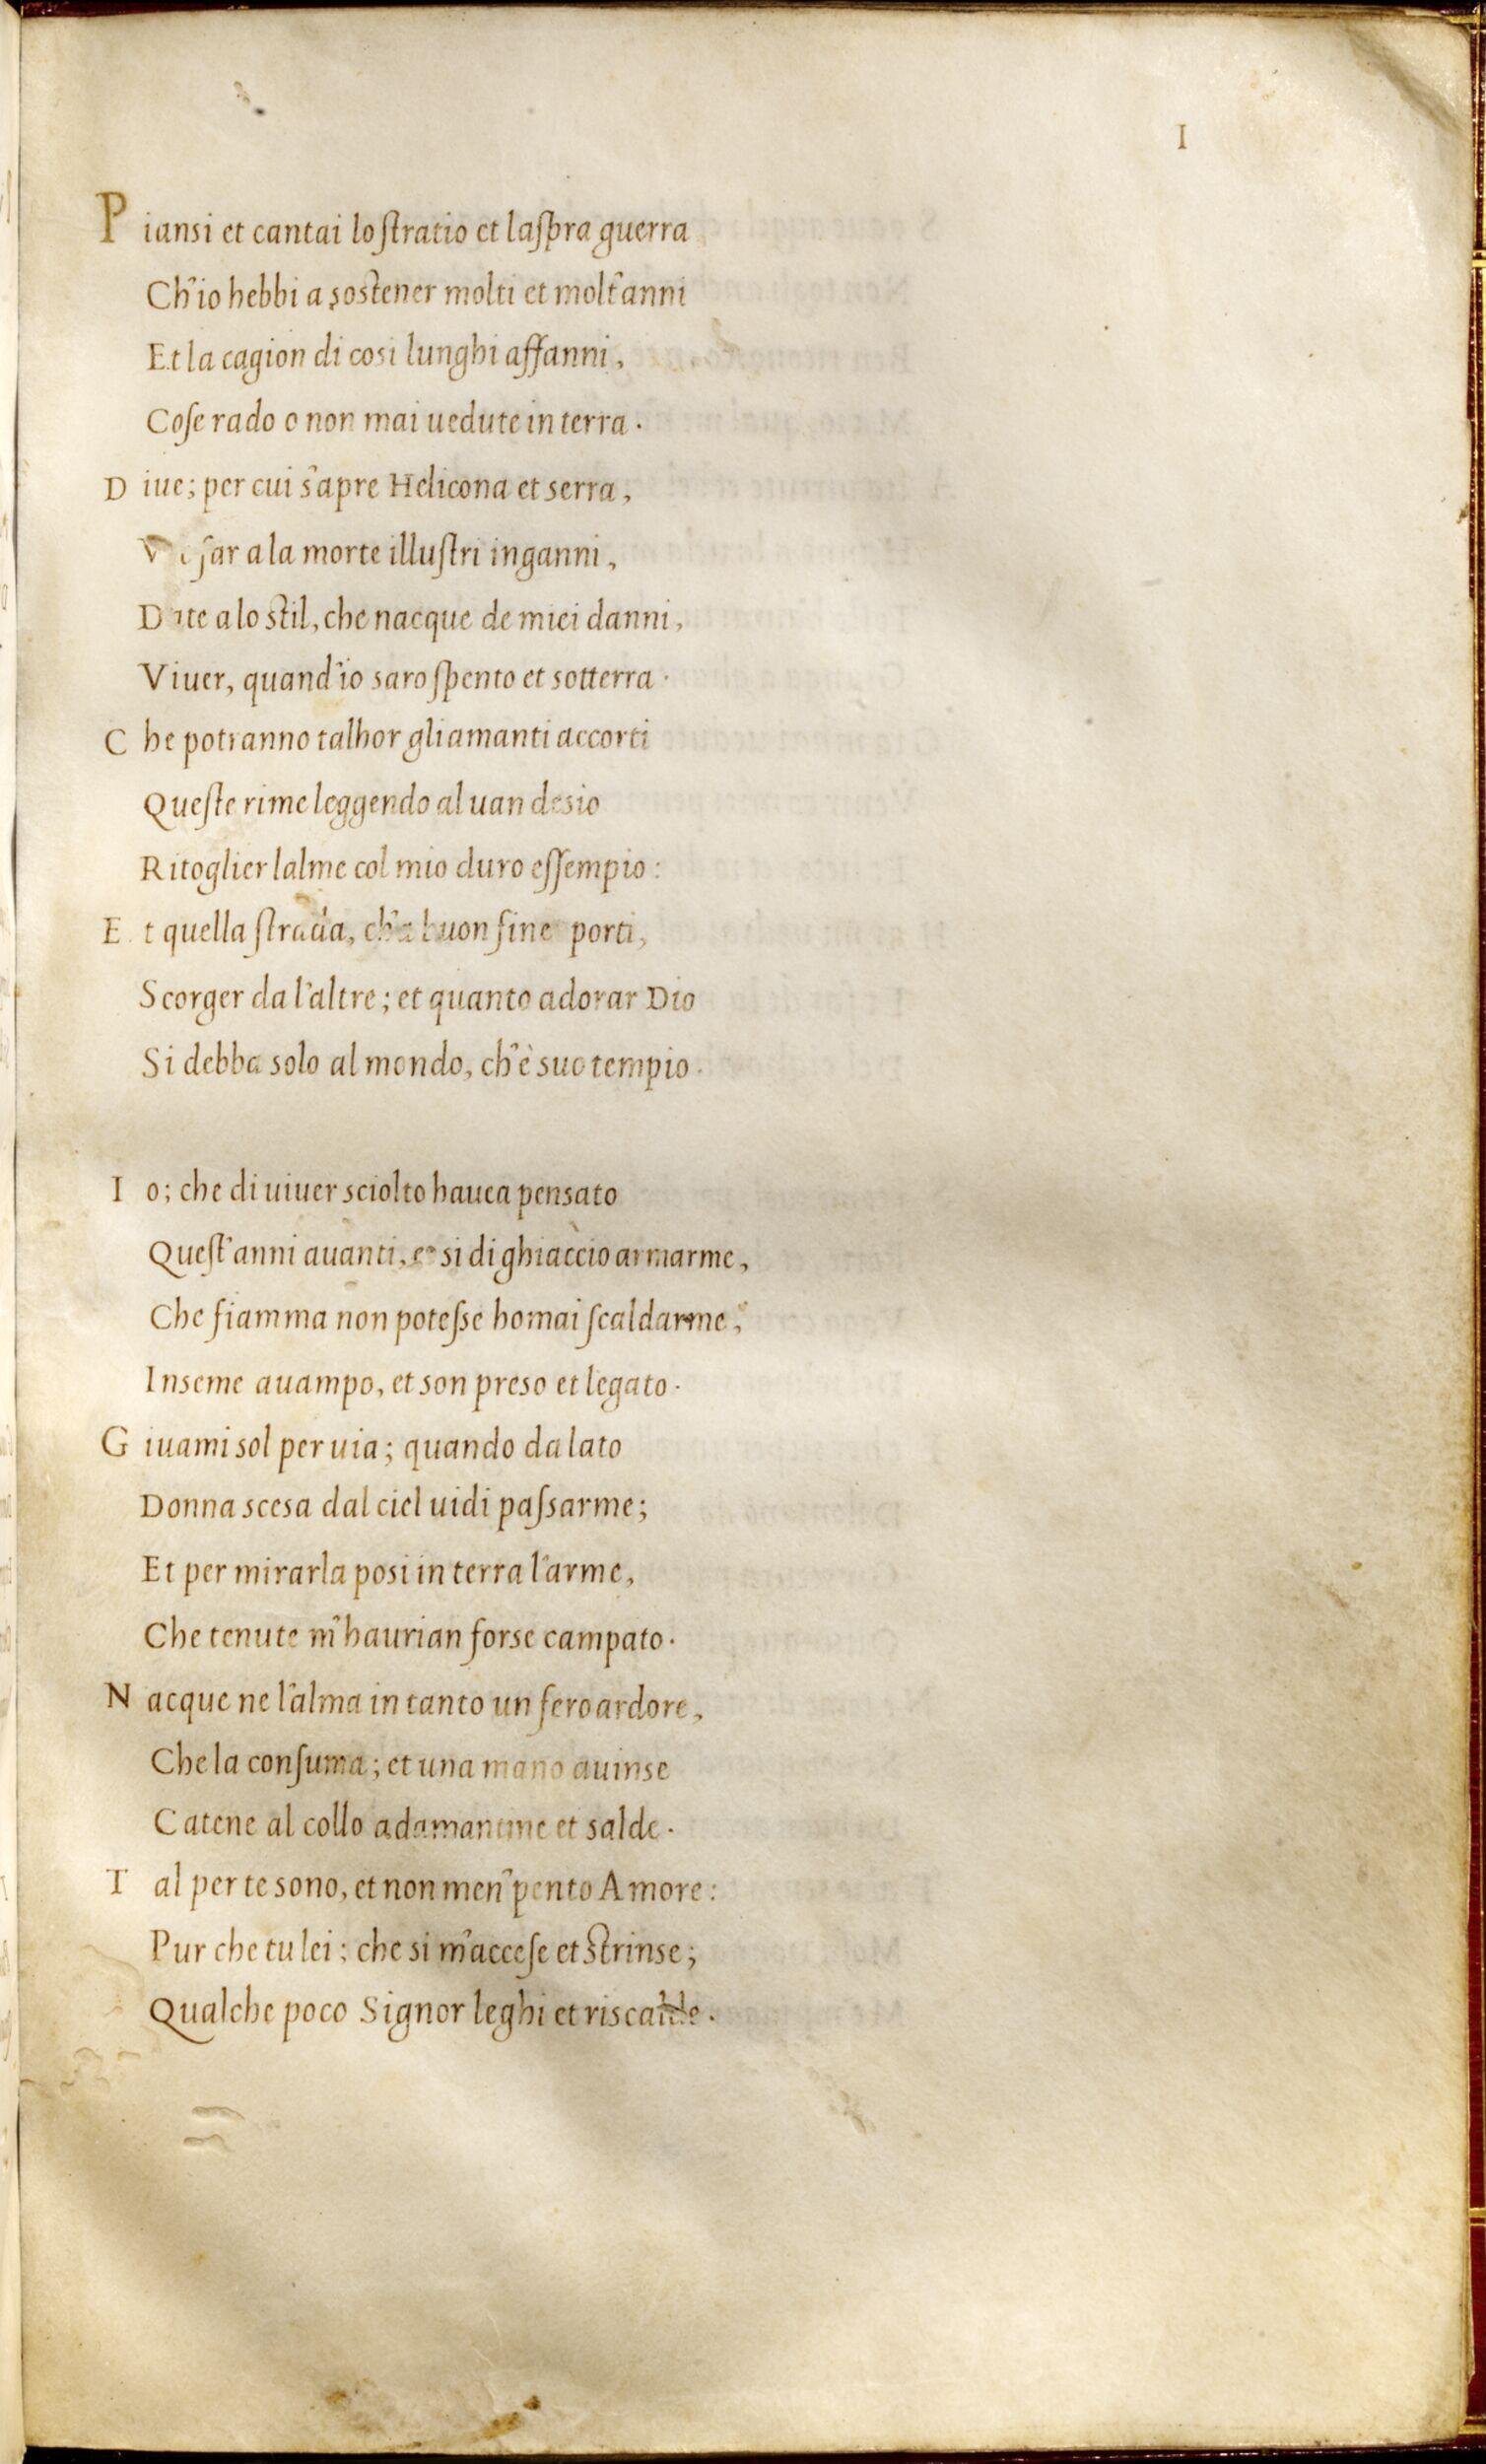 I
Piansi et cantai lo ſtratio et laſpra guerra
Ch'io hebbi a sostener molti et molt'anni
Et la cagion di cosi lunghi affanni,
Coſe rado o non mai uedute in terra.
Diue; per cui s'apre Helicona et serra,
far a la morte illuſtri inganni,
Date a lo stil, che nacque de miei danni,
Viuer, quand'io saro ſpento et sotterra.
Che potranno talhor gliamanti accorti
Queſte rime leggendo al uan desio
Ritoglier lalme col mio duro eſſempio:
Et quella ſtrada, ch'a buon fine porti,
Scorger da l'altre; et quanto adorar Dio
Si debba solo al mondo, ch'è suo tempio.
Io; che di uiuer sciolto hauea pensato
Queſt'anni auanti, e si di ghiaccio armarme,
Che fiamma non poteſse homai ſcaldarme,
Inseme auampo, et son preso et legato.
Giuami sol per uia; quando da lato
Donna scesa dal ciel uidi paſsarme;
Et per mirarla posi in terra l'arme,
Che tenute m'haurian forse campato.
Nacque ne l'alma in tanto un fero ardore,
Che la conſuma; et una mano auinse
Catene al collo adamantine et salde.
Tal per te sono, et non men'pento Amore:
Pur che tu lei; che si m'acceſe et strinse;
Qualche poco Signor leghi et riscalde.